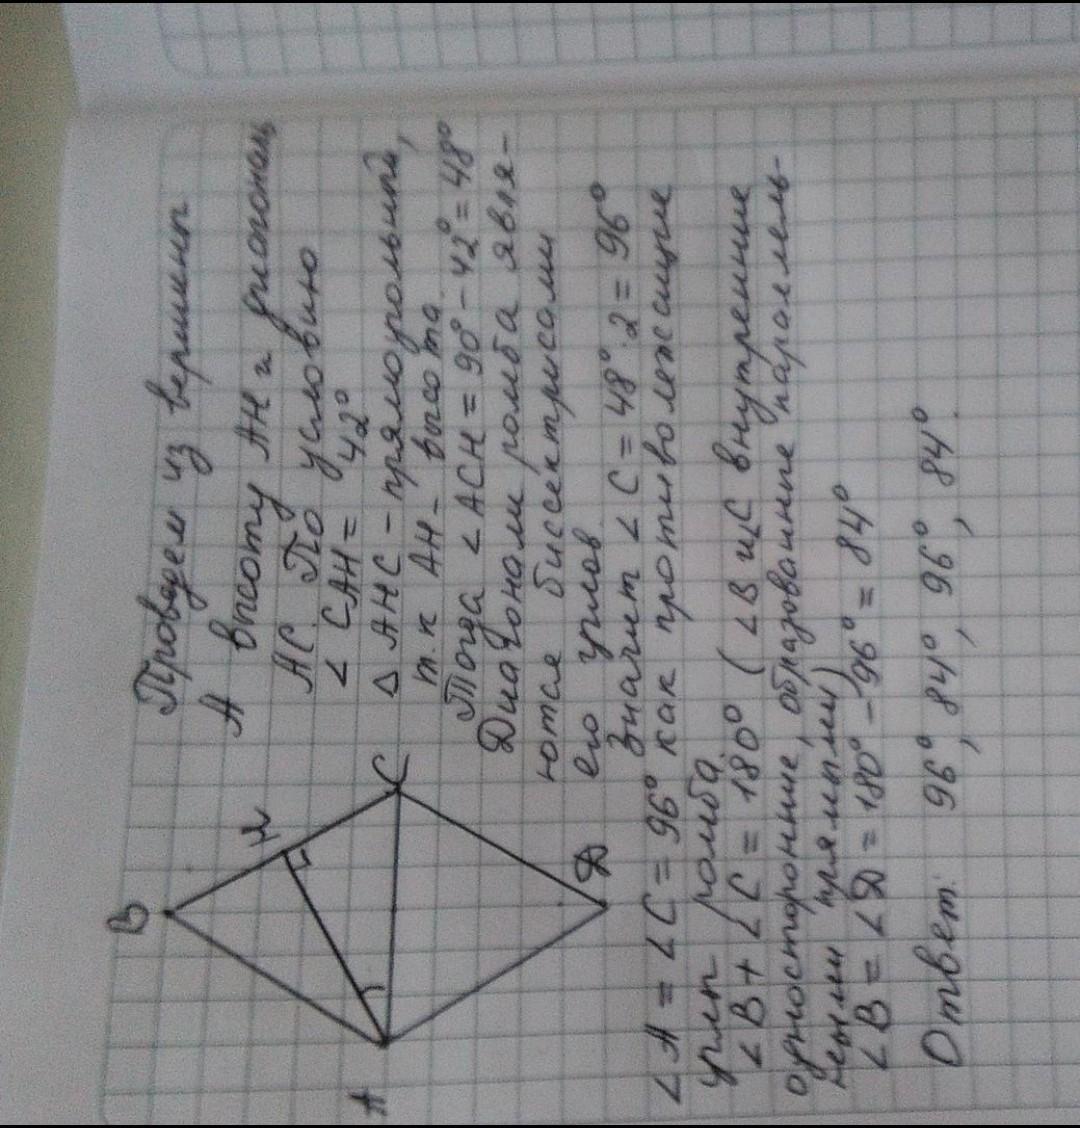 B
H
C
A
D
Проведем из вершины
А высоту АН и диагональ
АС. По условию
∠ САН = 42°
△ АНС - прямоугольный,
т.к АН - высота.
Тогда ∠ АСН = 90° - 42° = 48°
Диагонали ромба явля-
ются биссектрисами
его углов.
Значит ∠ С = 48° · 2 = 96°
∠А = ∠С = 96° как противолежащие
углы ромба
∠В + ∠С = 180° ( ∠В и ∠С внутренние
односторонние, образованные паралель-
ными прямыми)
∠В = ∠D = 180° - 96° = 84°
Ответ: 96°, 84°, 96°, 84°.